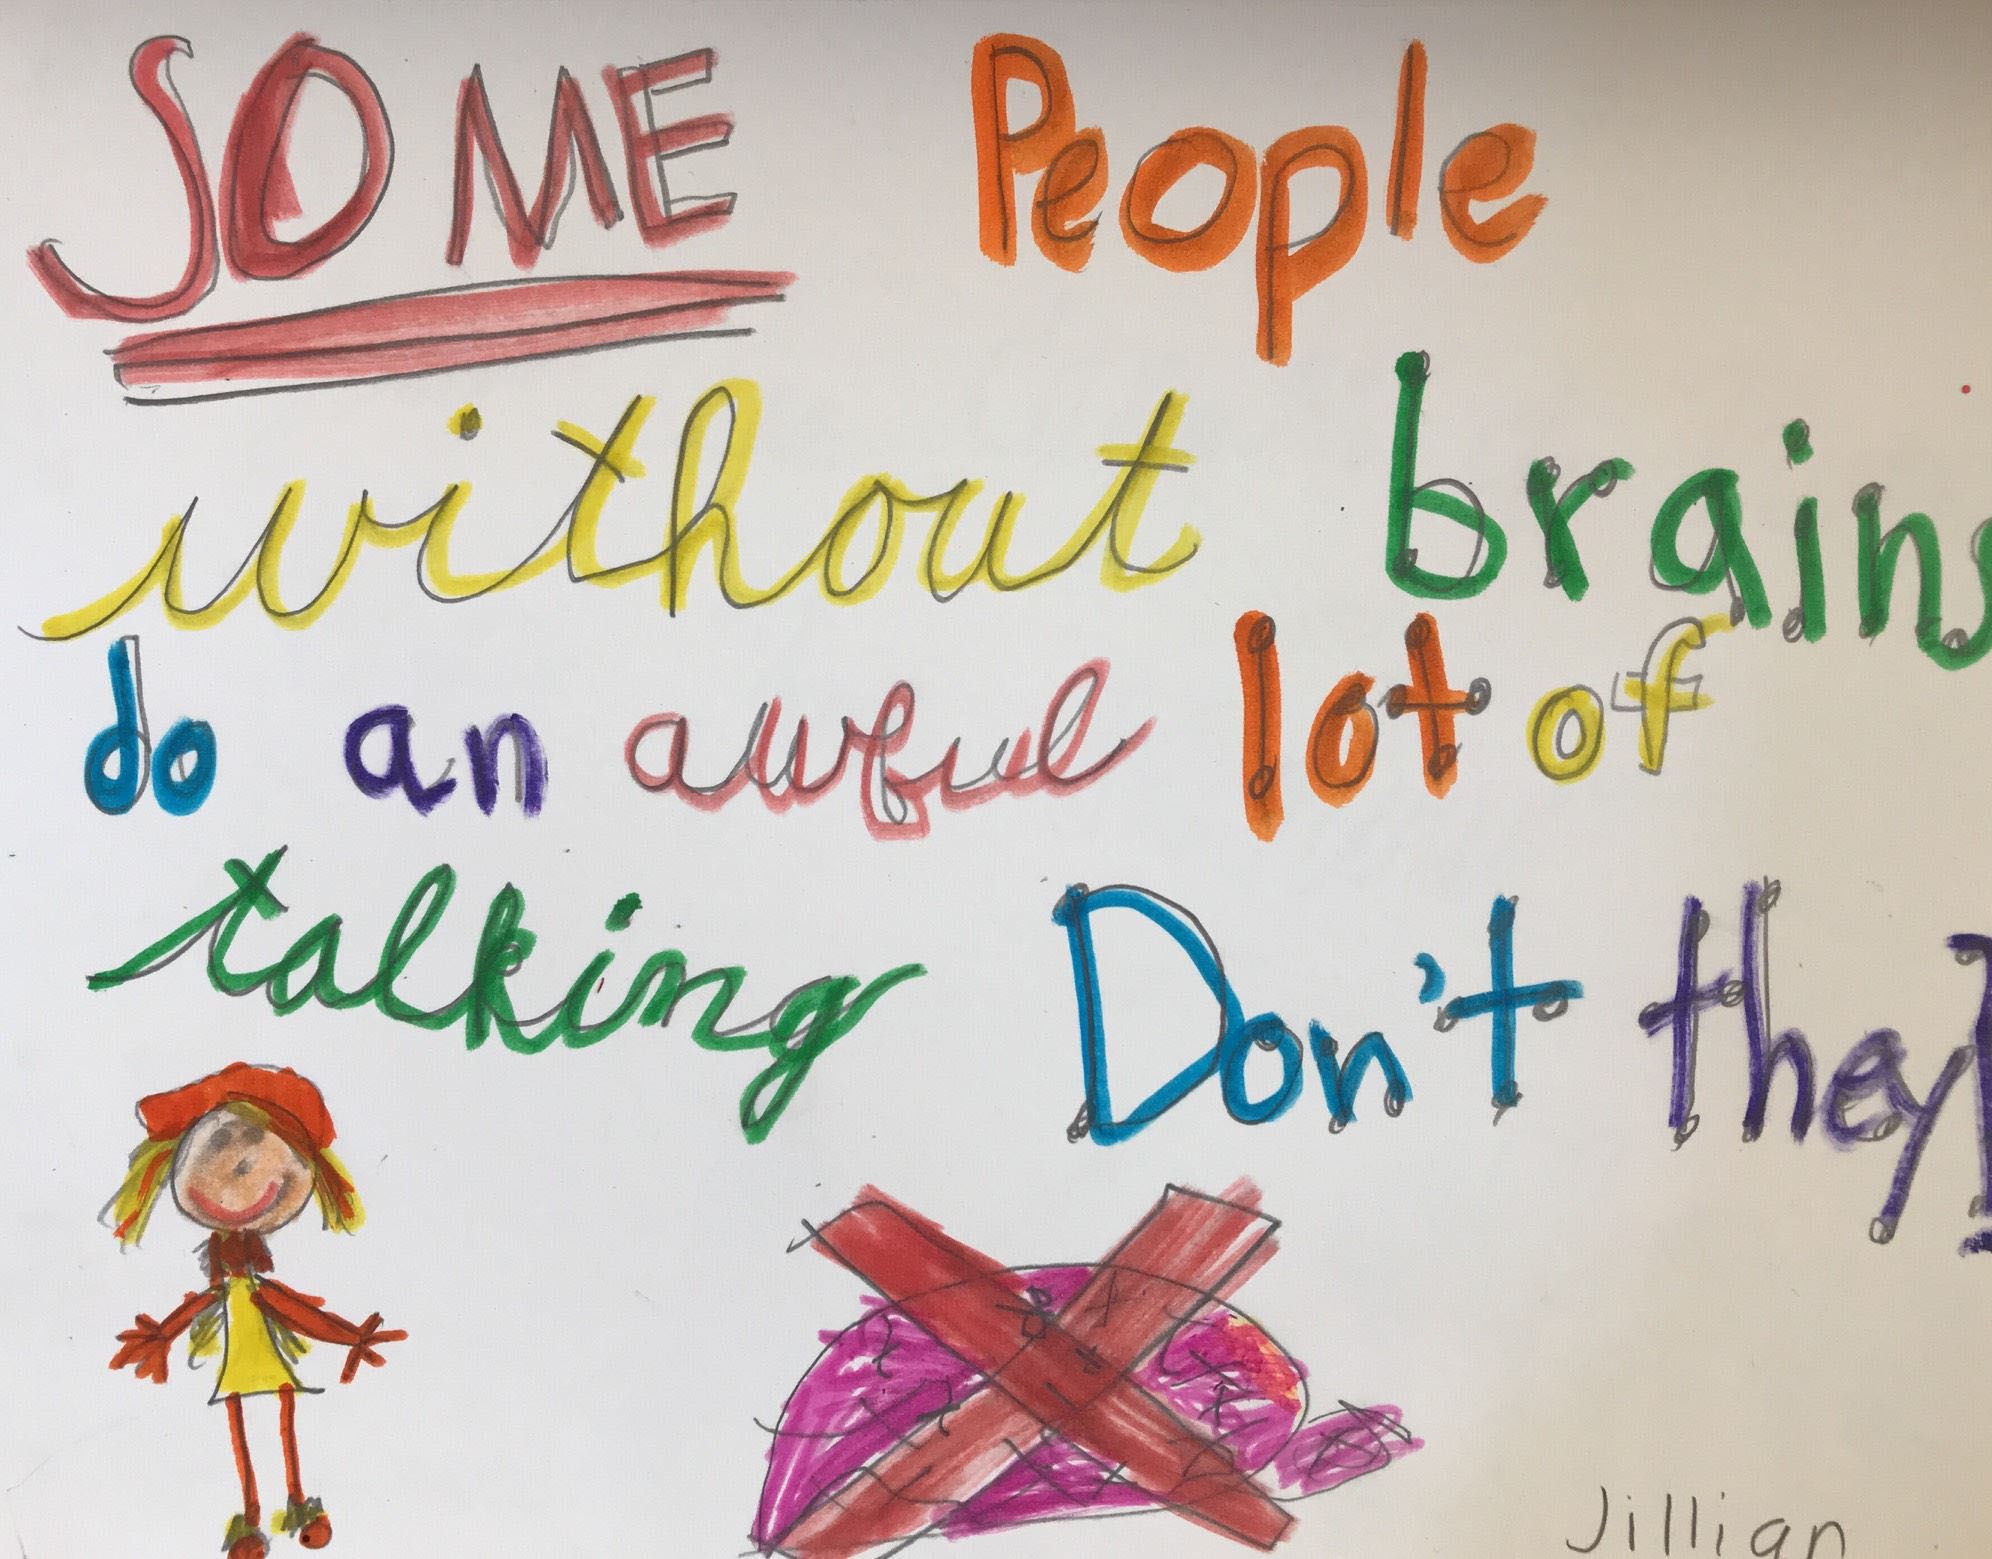 SOME People
without brains
do an awful lot of
talking Don't they
Jillian